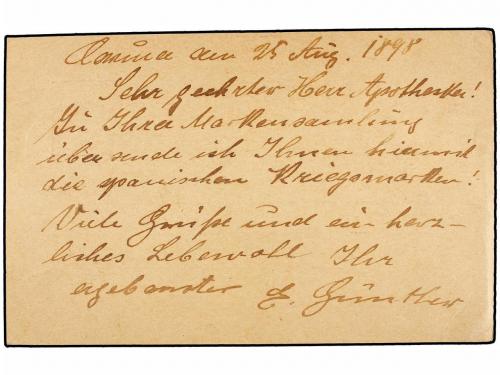 den 25 Aug. 1898
Sehr geehrter Herr Apotheker!
Zu Ihrer Markensammlung
übersende ich Ihnen hiermit
die spanischen Kriegsmarken!
Viele Grüße und ein herz-
liches Lebewohl Ihr
ergebenster E. Günther